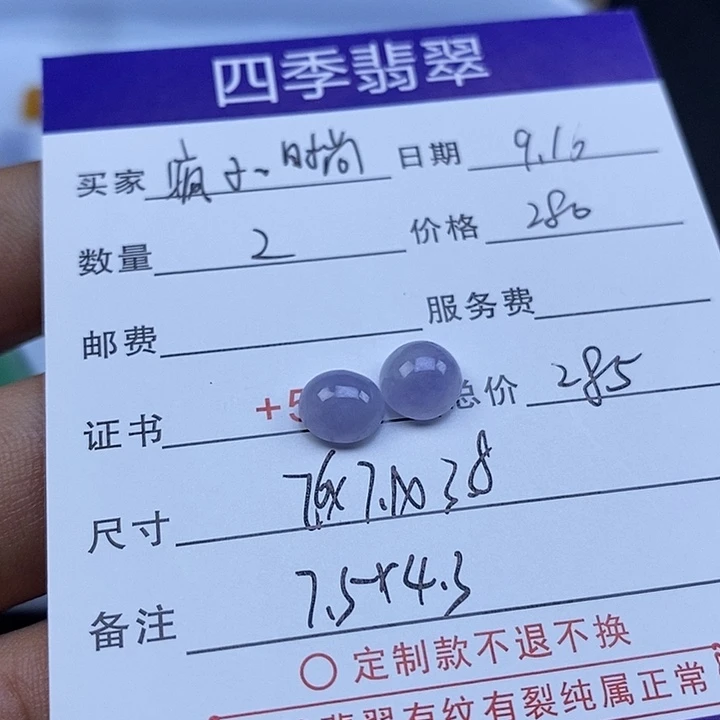 四季翡翠
买家 疯子、时尚 日期 9.16
数量 2 价格 280
邮费 服务费
证书 +5 总价 285
尺寸 7.6x7.1x3.8
备注 7.5x4.3
〇 定制款不退不换
翡翠有纹有裂纯属正常